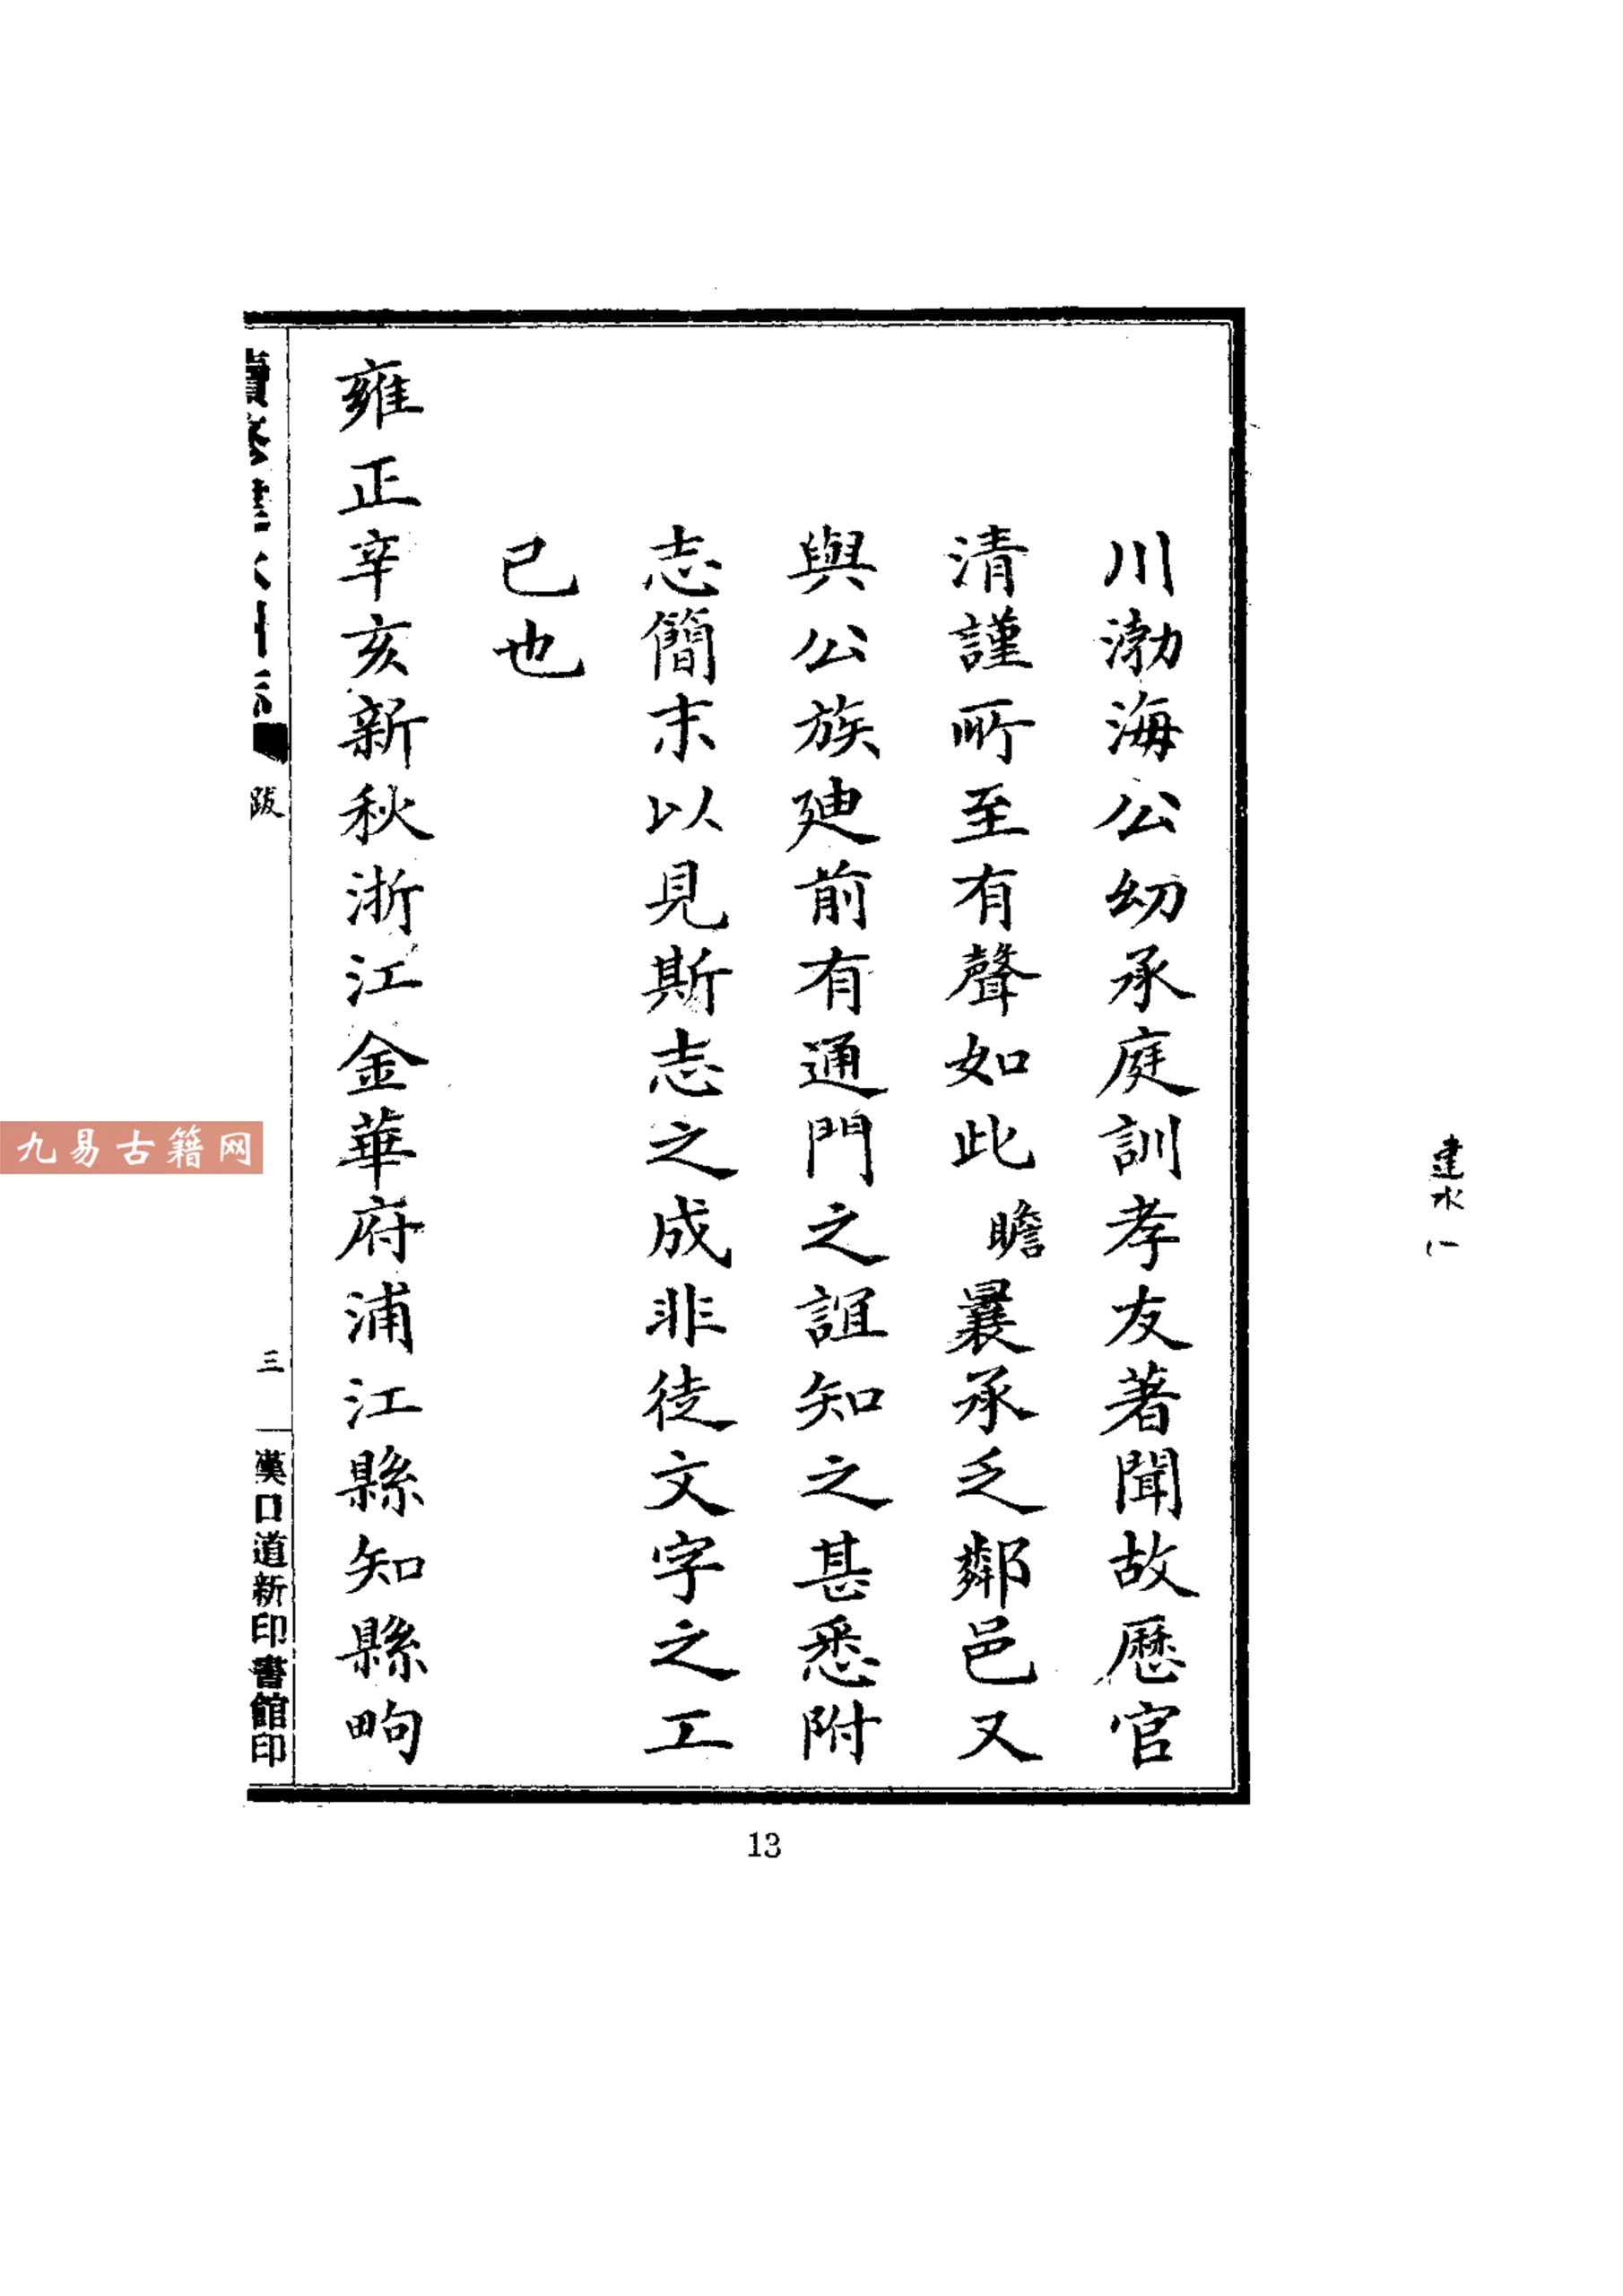 川渤海公幼承庭訓孝友著聞故歷官
清謹所至有聲如此瞻曩承乏鄰邑又
與公族廸前有通門之誼知之甚悉附
志簡末以見斯志之成非徒文字之工
已也
雍正辛亥新秋浙江金華府浦江縣知縣昫
續修建水州志
跋
三
漢口道新印書館印
建水
九易古籍网
13